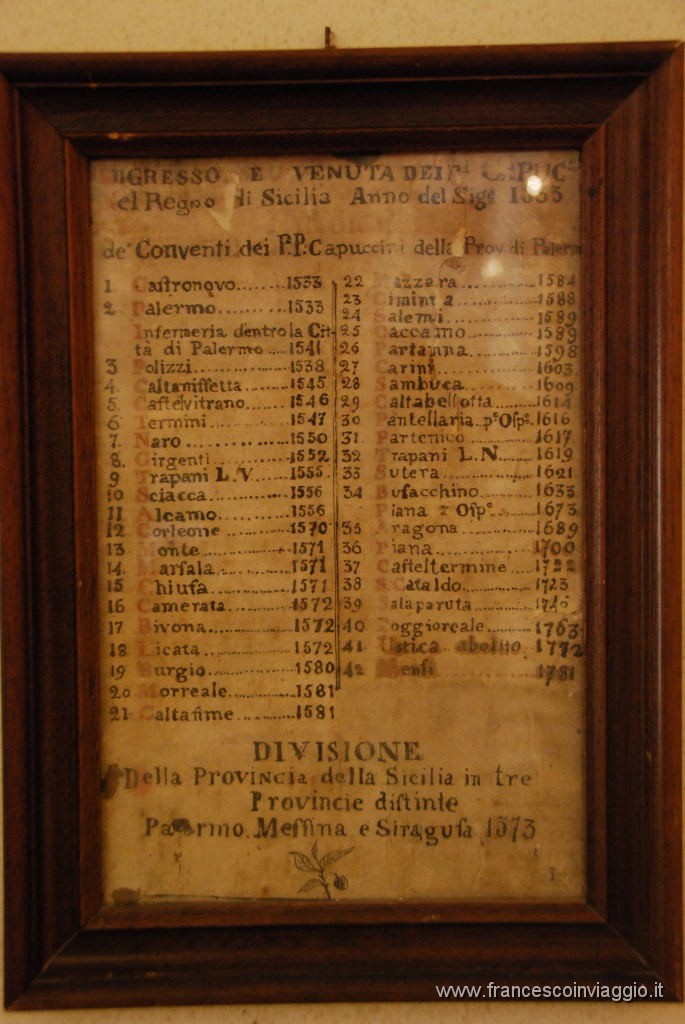 NGRESSO E VENUTA DEI P.i CAPUC.
el Regno di Sicilia Anno del Sig.e 1533
de' Conventi dei P.P. Capuccini della Prov. di Palerm
1 Castronovo........1533
2 Palermo........1533
Infermeria dentro la Cit-
tà di Palermo....1541
3 Polizzi............1538
4. Caltanissetta.....1545
5. Castelvitrano....1546
6 Termini.........1547
7. Naro...........1550
8. Girgenti.........1552
9 Trapani L.V.....1555
10 Sciacca.........1556
11 Alcamo........1556
12 Corleone.......1570
13 Monte.........1571
14. Marsala.......1571
15 Chiusa........1571
16 Camerata.......1572
17 Bivona..........1572
18 Licata.........1572
19 Burgio.........1580
20 Morreale........1581
21 Caltafime........1581
22 Mazzara.......1584
23 Ciminna.......1588
24 Salemi.........1589
25 Caccamo.......1589
26 Partanna.......1598
27 Carini.........1603
28 Sambuca.......1609
29 Caltabellotta....1614
30 Pantellaria p.º Osp.º.1616
31 Partenico.......1617
32 Trapani L.N.....1619
33 Sutera........1621
34 Busacchino.....1633
Piana 2 Osp.º....1673
35 Aragona.......1689
36 Piana.........1700
37 Casteltermine...1722
38 S. Cataldo......1723
39 Salaparuta.....
40 Poggioreale.....1763
41 Ustica abolito 1772
42 Menfi 1781
DIVISIONE
Della Provincia della Sicilia in tre
Provincie distinte
Palermo. Messina e Siragusa 1573
www.francescoinviaggio.it